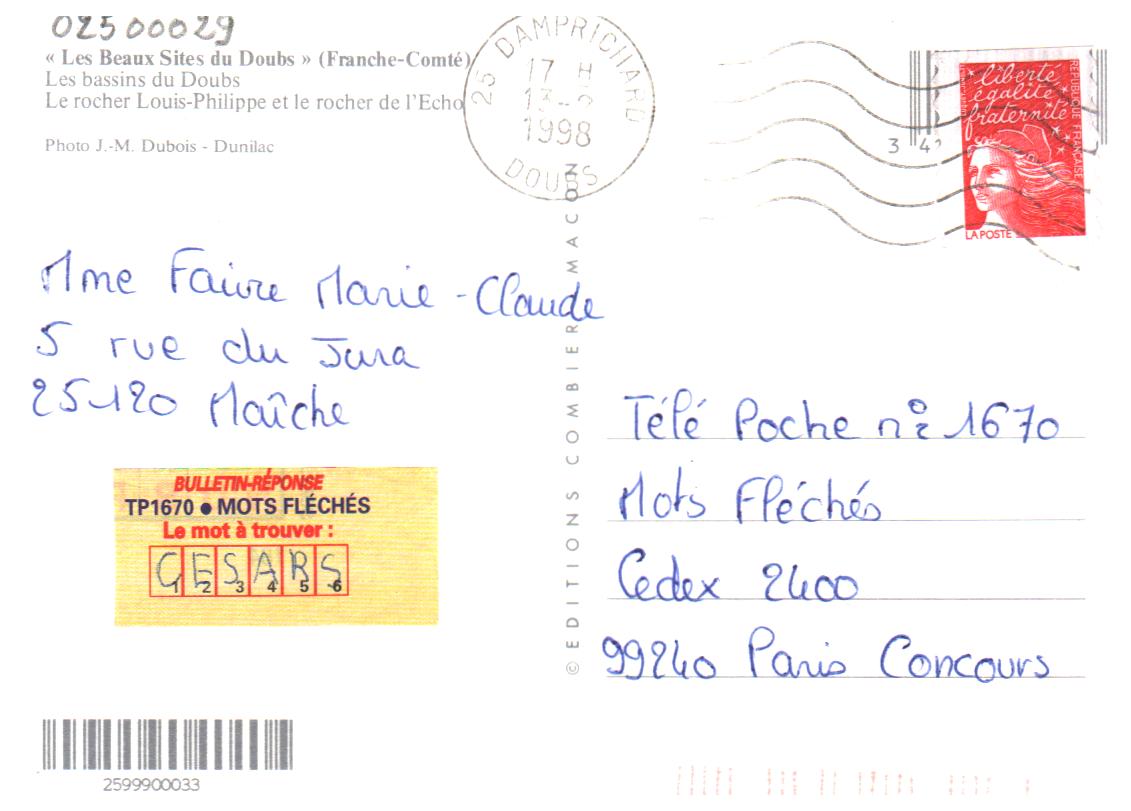 02500029
« Les Beaux Sites du Doubs » (Franche-Comté)
Les bassins du Doubs
Le rocher Louis-Philippe et le rocher de l'Echo
Photo J.-M. Dubois - Dunilac
25 DAMPRICHARD
17 H
13-
1998
DOUBS
3 4
liberté
égalité
fraternité
RÉPUBLIQUE FRANÇAISE
LA POSTE
Mme Faivre Marie-Claude
5 rue du Jura
25120 Maîche
BULLETIN-RÉPONSE
TP1670 ● MOTS FLÉCHÉS
Le mot à trouver :
CESARS
1 2 3 4 5 6
© EDITIONS COMBIER MACON
Télé Poche n° 1670
Mots Fléchés
Cedex 2400
99240 Paris Concours
2599900033